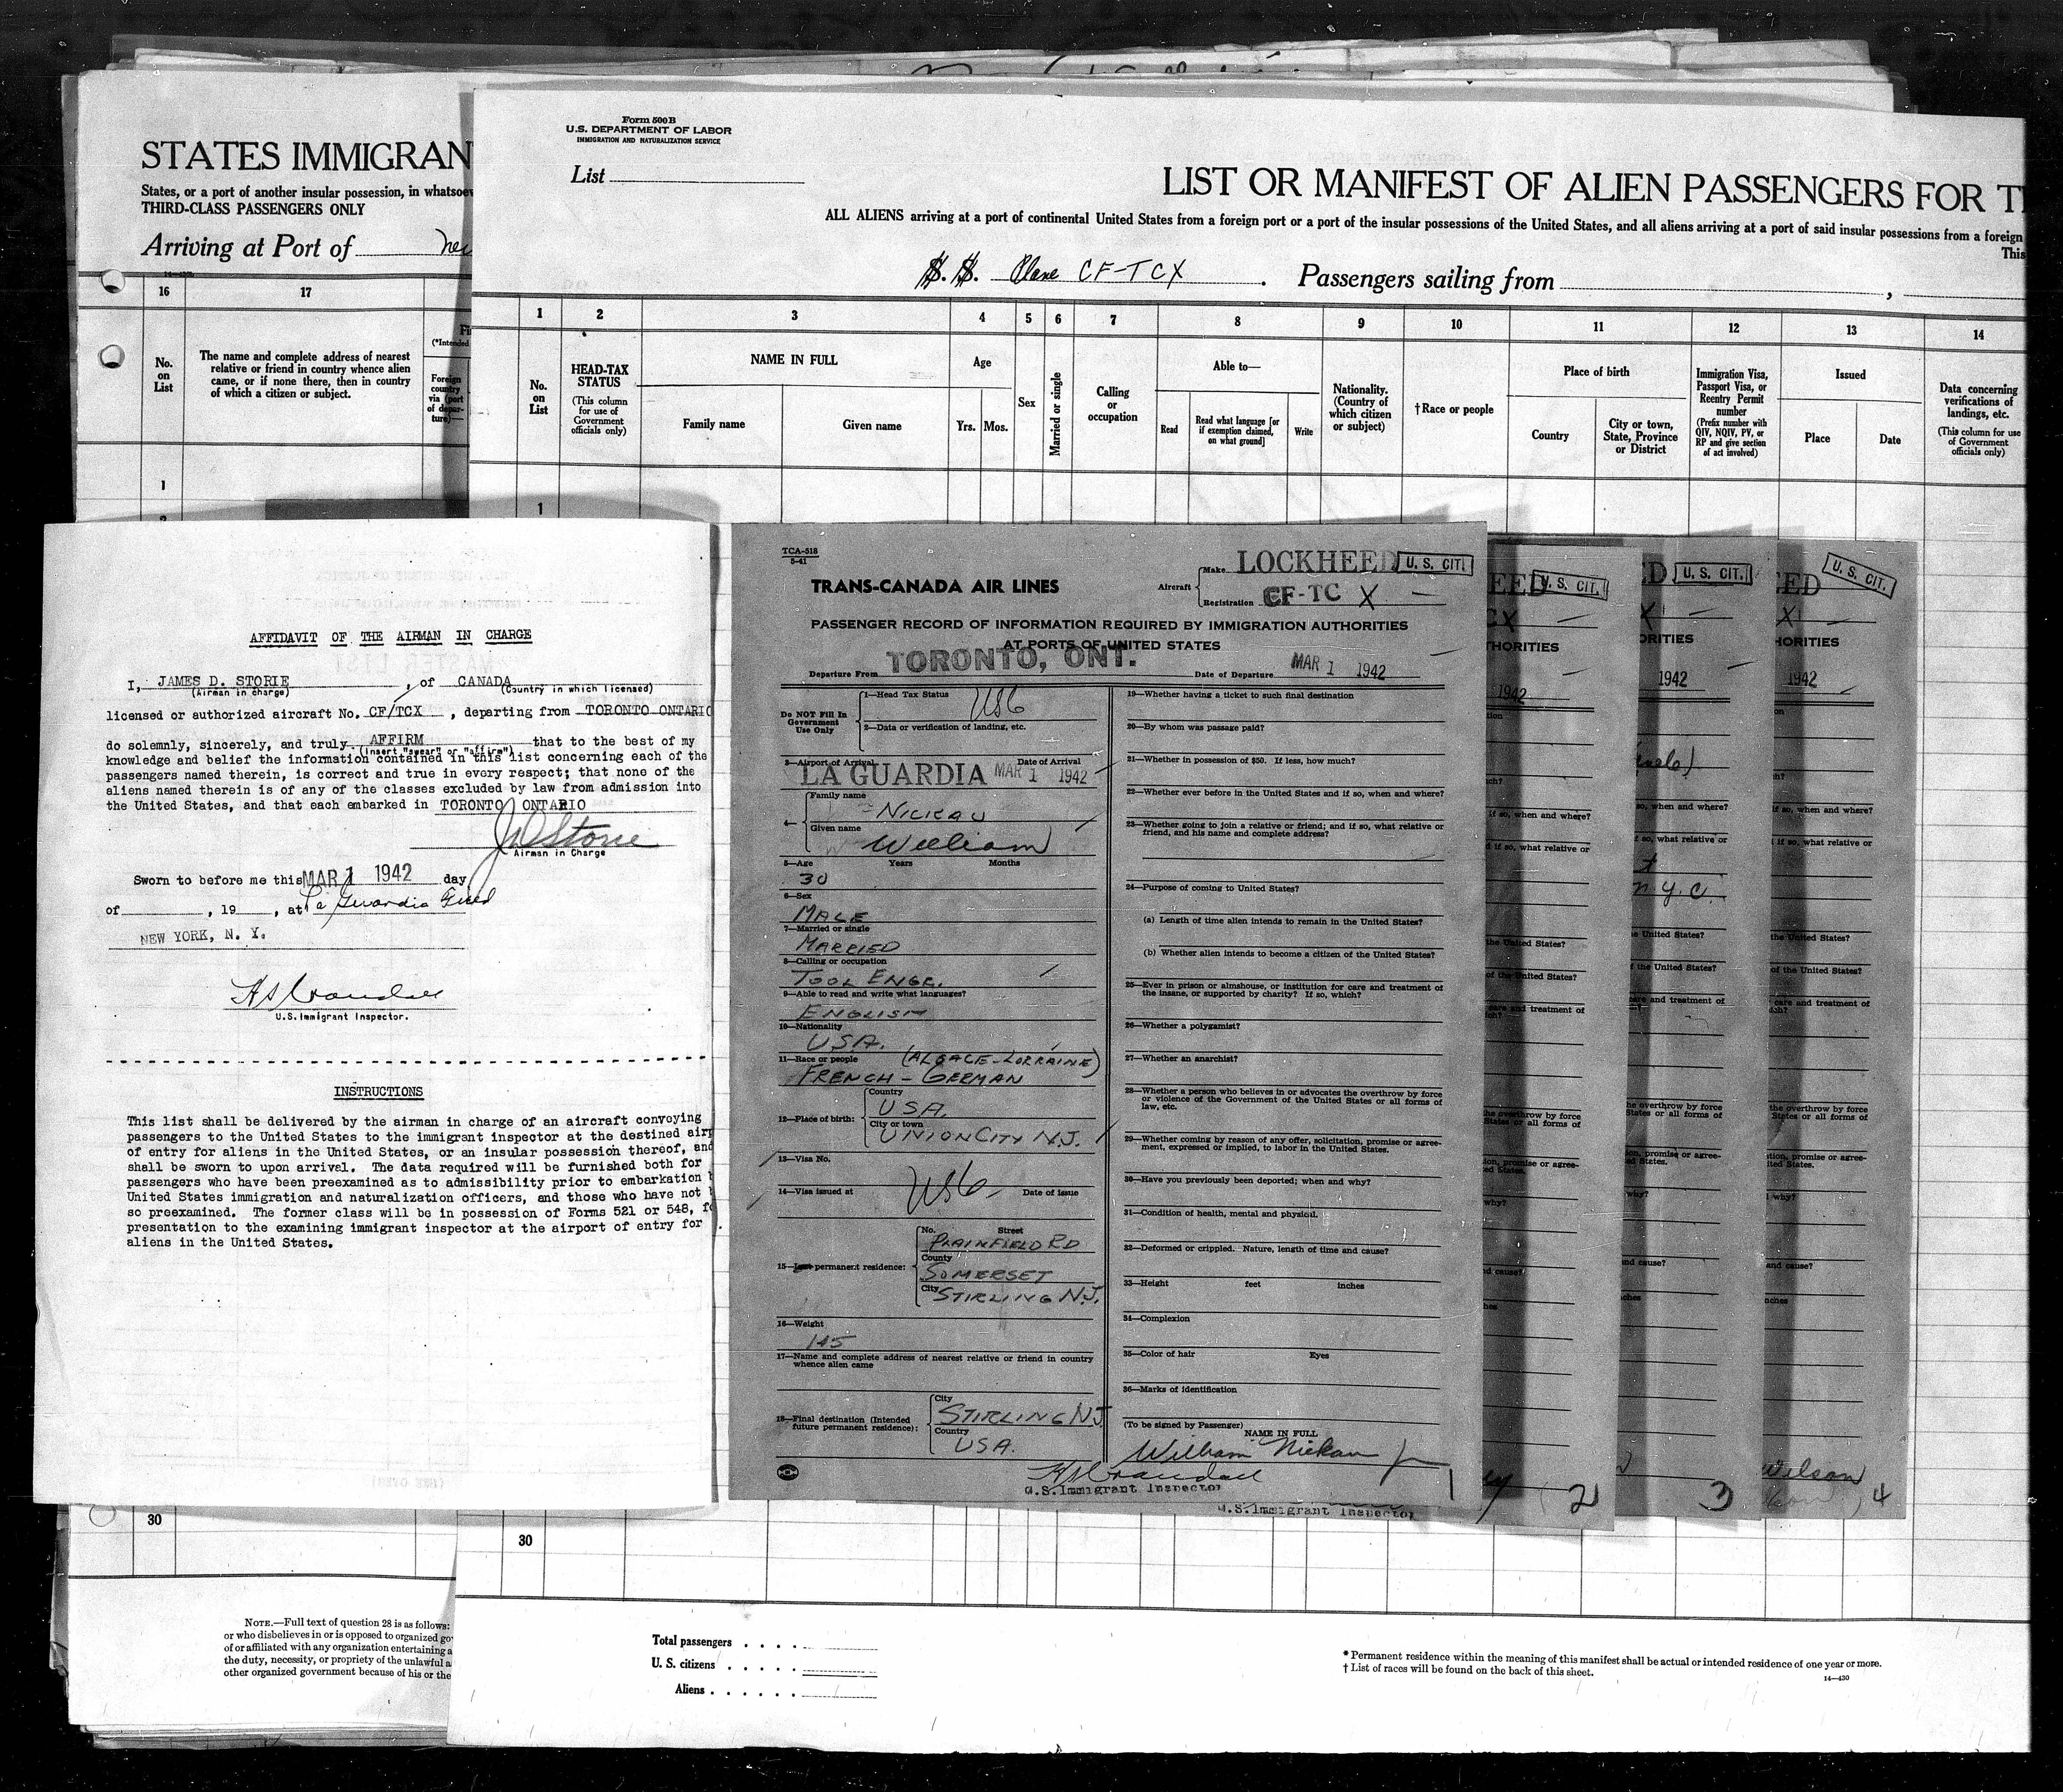 STATES IMMIGRAN
States, or a port of another insular possession, in whatsoev
THIRD-CLASS PASSENGERS ONLY
Arriving at Port of
16
17
No. on List
The name and complete address of nearest
relative or friend in country whence alien
came, or if none there, then in country
of which a citizen or subject.
Foreign
country
via (port
of depar-
ture)—
1
Form 500B
U.S. DEPARTMENT OF LABOR
IMMIGRATION AND NATURALIZATION SERVICE
List
LIST OR MANIFEST OF ALIEN PASSENGERS FOR T
ALL ALIENS arriving at a port of continental United States from a foreign port or a port of the insular possessions of the United States, and all aliens arriving at a port of said insular possessions from a foreign
This
S. S. Plane CF-TCX . Passengers sailing from ,
1 2 3 4 5 6 7 8 9 10 11 12 13 14
No. on List
HEAD-TAX
STATUS
(This column
for use of
Government
officials only)
NAME IN FULL
Family name Given name
Age
Yrs. Mos.
Sex
Married or single
Calling
or
occupation
Able to—
Read
Read what language [or
if exemption claimed,
on what ground]
Write
Nationality.
(Country of
which citizen
or subject)
†Race or people
Place of birth
Country
City or town,
State, Province
or District
Immigration Visa,
Passport Visa, or
Reentry Permit
number
(Prefix number with
QIV, NQIV, PV, or
RP and give section
of act involved)
Issued
Place Date
Data concerning
verifications of
landings, etc.
(This column for use
of Government
officials only)
1
AFFIDAVIT OF THE AIRMAN IN CHARGE
I, JAMES D. STORIE , of CANADA
(Airman in charge) (Country in which licensed)
licensed or authorized aircraft No. CF/TCX , departing from TORONTO ONTARIO
do solemnly, sincerely, and truly AFFIRM that to the best of my
(insert "swear" or "affirm")
knowledge and belief the information contained in this list concerning each of the
passengers named therein, is correct and true in every respect; that none of the
aliens named therein is of any of the classes excluded by law from admission into
the United States, and that each embarked in TORONTO ONTARIO
JDStorie
Airman in Charge
Sworn to before me this MAR 1 1942 day
of , 19 , at La Guardia Field
NEW YORK, N. Y.
HS Crandall
U.S. Immigrant Inspector.
INSTRUCTIONS
This list shall be delivered by the airman in charge of an aircraft convoying
passengers to the United States to the immigrant inspector at the destined airp
of entry for aliens in the United States, or an insular possession thereof, and
shall be sworn to upon arrival. The data required will be furnished both for
passengers who have been preexamined as to admissibility prior to embarkation b
United States immigration and naturalization officers, and those who have not b
so preexamined. The former class will be in possession of Forms 521 or 548, fo
presentation to the examining immigrant inspector at the airport of entry for
aliens in the United States.
TCA-518
5-41
TRANS-CANADA AIR LINES
Aircraft
Make LOCKHEED
U. S. CIT.
Registration CF-TC X
PASSENGER RECORD OF INFORMATION REQUIRED BY IMMIGRATION AUTHORITIES
AT PORTS OF UNITED STATES
Departure From TORONTO, ONT. Date of Departure MAR 1 1942
Do NOT Fill In
Government
Use Only
1—Head Tax Status
USC
2—Data or verification of landing, etc.
3—Airport of Arrival Date of Arrival
LA GUARDIA MAR 1 1942
4—
Family name
NICKAU
Given name
William
5—Age Years Months
30
6—Sex
MALE
7—Married or single
MARRIED
8—Calling or occupation
TOOL ENGR.
9—Able to read and write what languages?
ENGLISH
10—Nationality
USA.
11—Race or people (ALSACE-LORRAINE)
FRENCH - GERMAN
12—Place of birth:
Country
USA.
City or town
UNION CITY N.J.
13—Visa No.
14—Visa issued at USC Date of issue
15—Last permanent residence:
No. Street
PLAINFIELD RD
County
SOMERSET
City
STIRLING N.J.
16—Weight
145
17—Name and complete address of nearest relative or friend in country
whence alien came
18—Final destination (Intended
future permanent residence):
City
STIRLING N.J.
Country
USA.
19—Whether having a ticket to such final destination
20—By whom was passage paid?
21—Whether in possession of $50. If less, how much?
22—Whether ever before in the United States and if so, when and where?
23—Whether going to join a relative or friend; and if so, what relative or
friend, and his name and complete address?
24—Purpose of coming to United States?
(a) Length of time alien intends to remain in the United States?
(b) Whether alien intends to become a citizen of the United States?
25—Ever in prison or almshouse, or institution for care and treatment of
the insane, or supported by charity? If so, which?
26—Whether a polygamist?
27—Whether an anarchist?
28—Whether a person who believes in or advocates the overthrow by force
or violence of the Government of the United States or all forms of
law, etc.
29—Whether coming by reason of any offer, solicitation, promise or agree-
ment, expressed or implied, to labor in the United States.
30—Have you previously been deported; when and why?
31—Condition of health, mental and physical.
32—Deformed or crippled. Nature, length of time and cause?
33—Height feet inches
34—Complexion
35—Color of hair Eyes
36—Marks of identification
(To be signed by Passenger)
NAME IN FULL
William Nickau Jr
HS Crandall
U.S. Immigrant Inspector
1
U.S. Immigrant Inspector
U. S. CIT.
1942
2
U. S. CIT.
1942
N.Y.C.
3
U. S. CIT.
1942
Wilson
4
30
30
NOTE.—Full text of question 28 is as follows:
or who disbelieves in or is opposed to organized go
of or affiliated with any organization entertaining a
the duty, necessity, or propriety of the unlawful a
other organized government because of his or the
Total passengers . . . .
U. S. citizens . . . . .
Aliens . . . . . .
* Permanent residence within the meaning of this manifest shall be actual or intended residence of one year or more.
† List of races will be found on the back of this sheet.
14—430